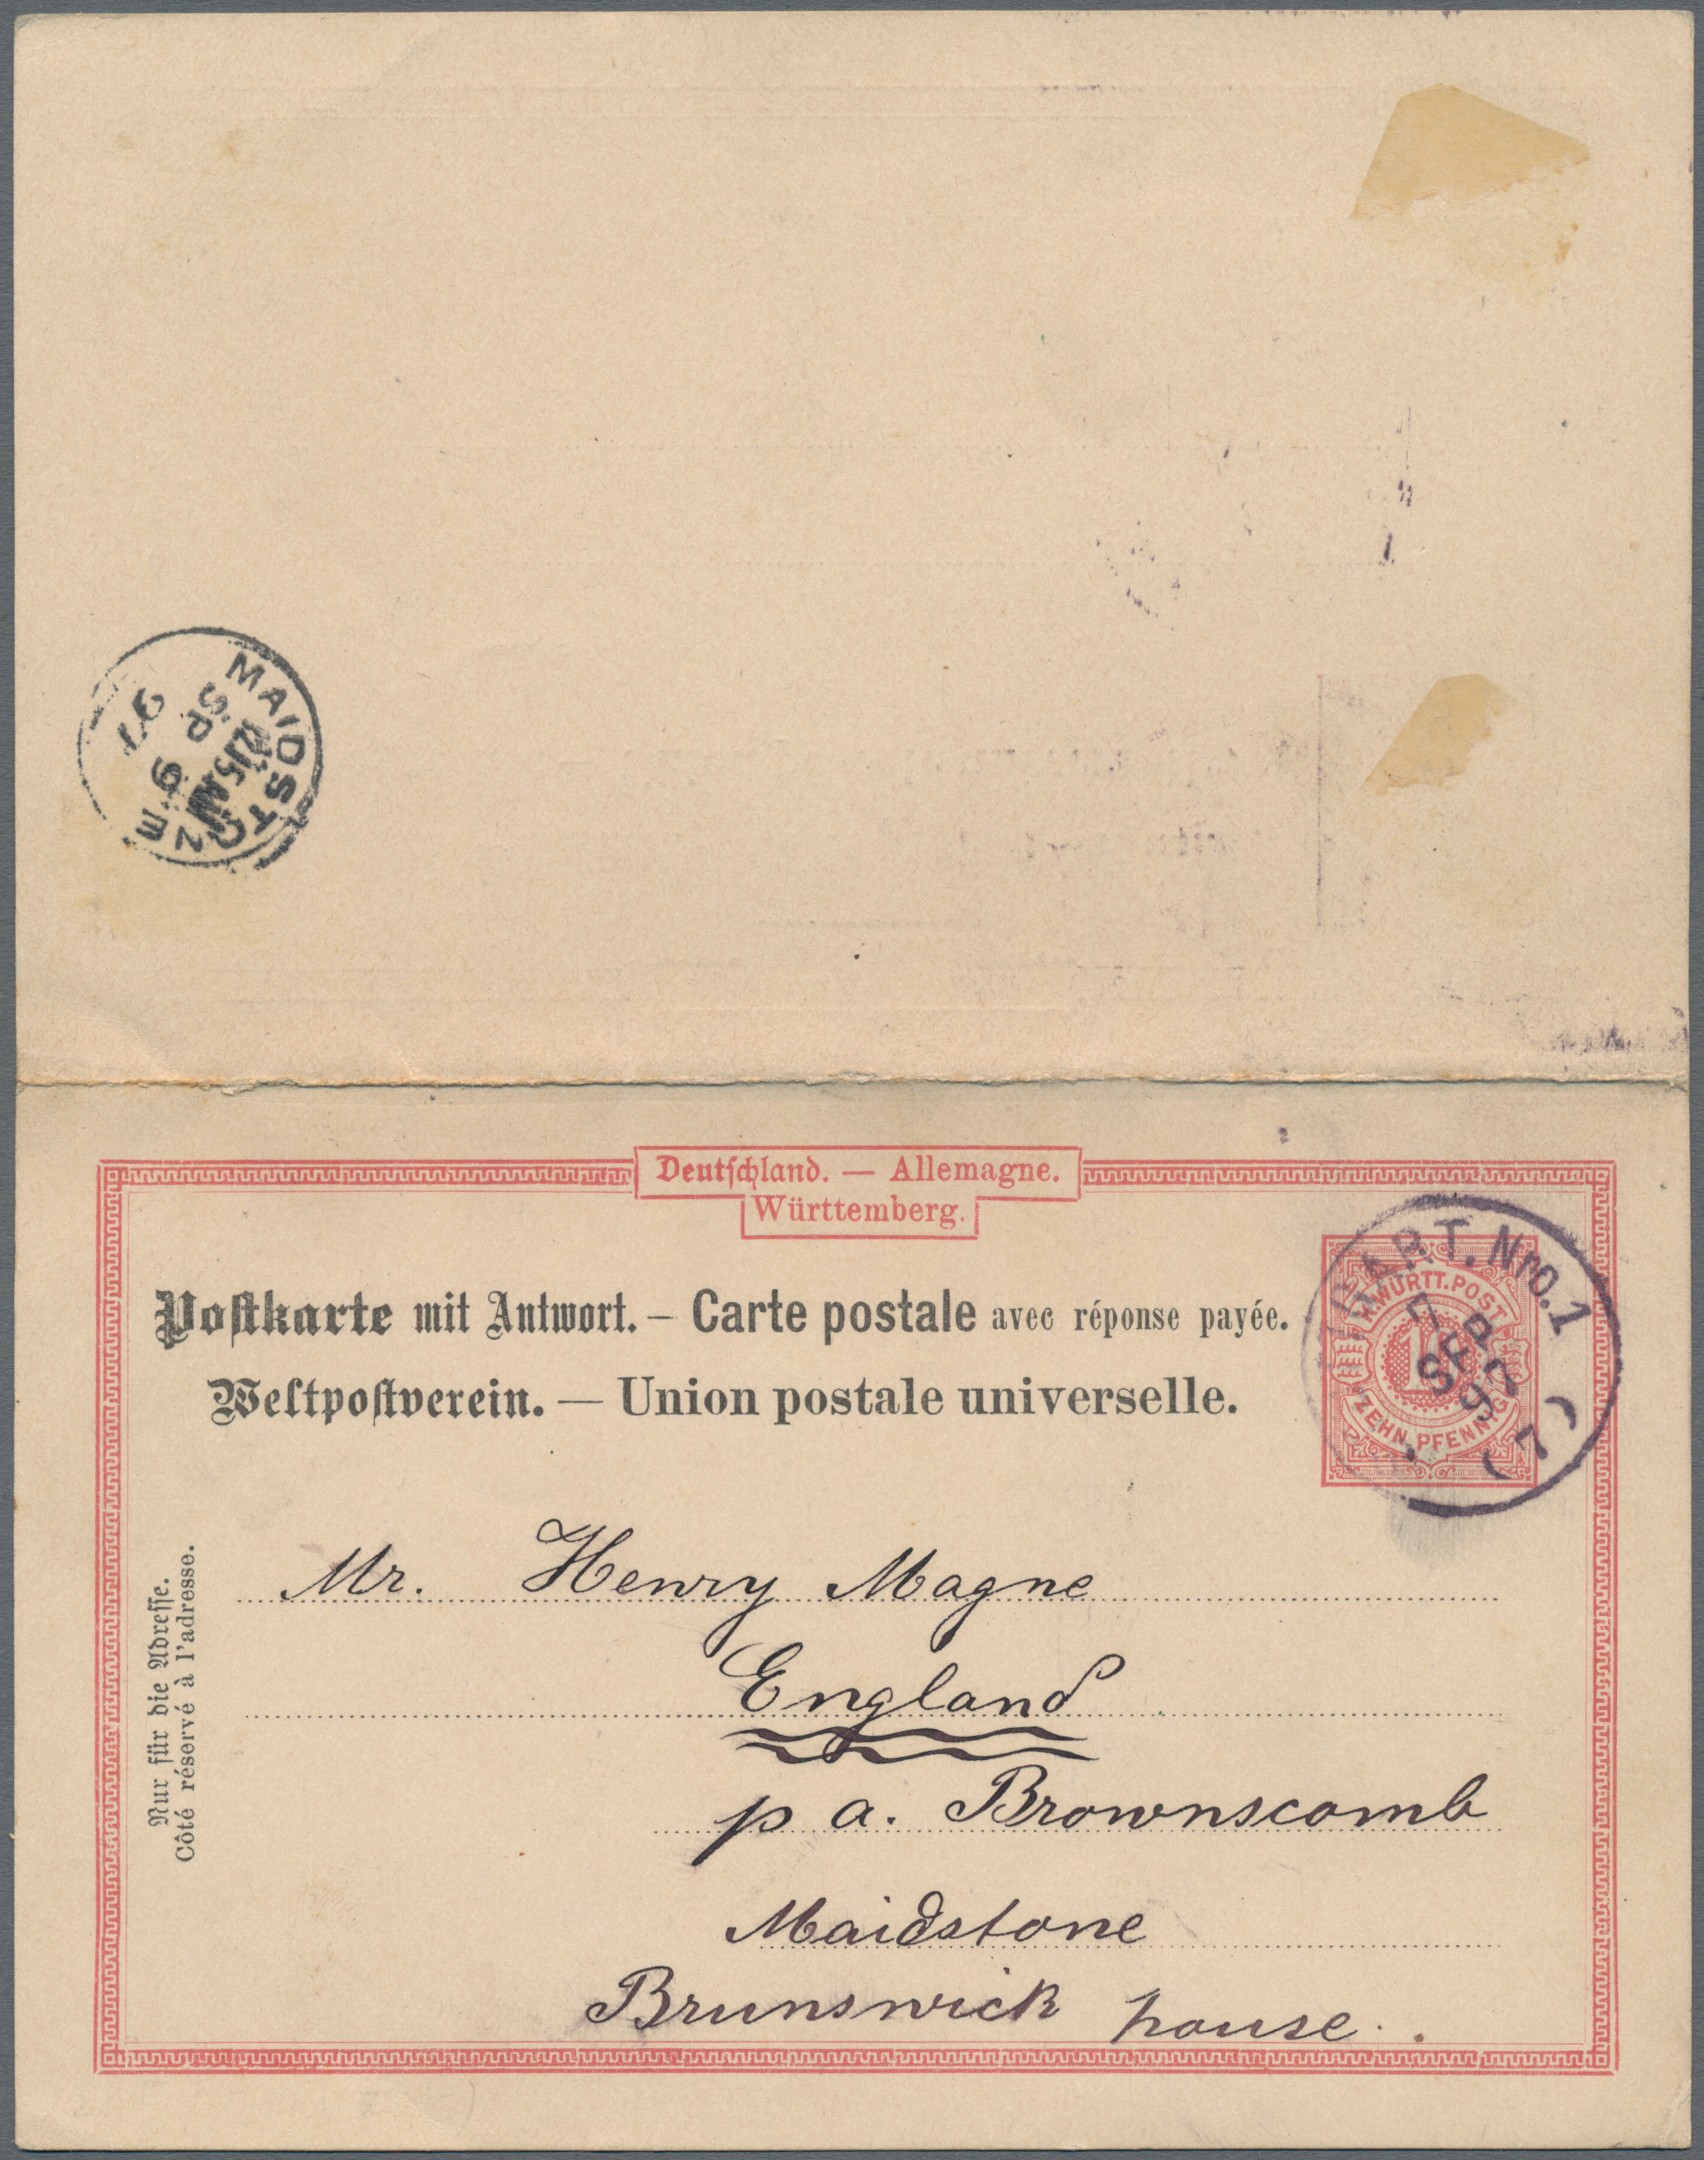 MAIDSTONE
12 15 AM
SP 9
97
Deutschland. — Allemagne.
Württemberg.
Postkarte mit Antwort. – Carte postale avec réponse payée.
Weltpostverein. — Union postale universelle.
K. WÜRTT. POST
10
ZEHN PFENNIG
Nro. 1
7
SEP
97
7
Nur für die Adresse.
Côté réservé à l'adresse.
Mr. Henry Magne
England
p a. Brownscomb
Maidstone
Brunswick house.